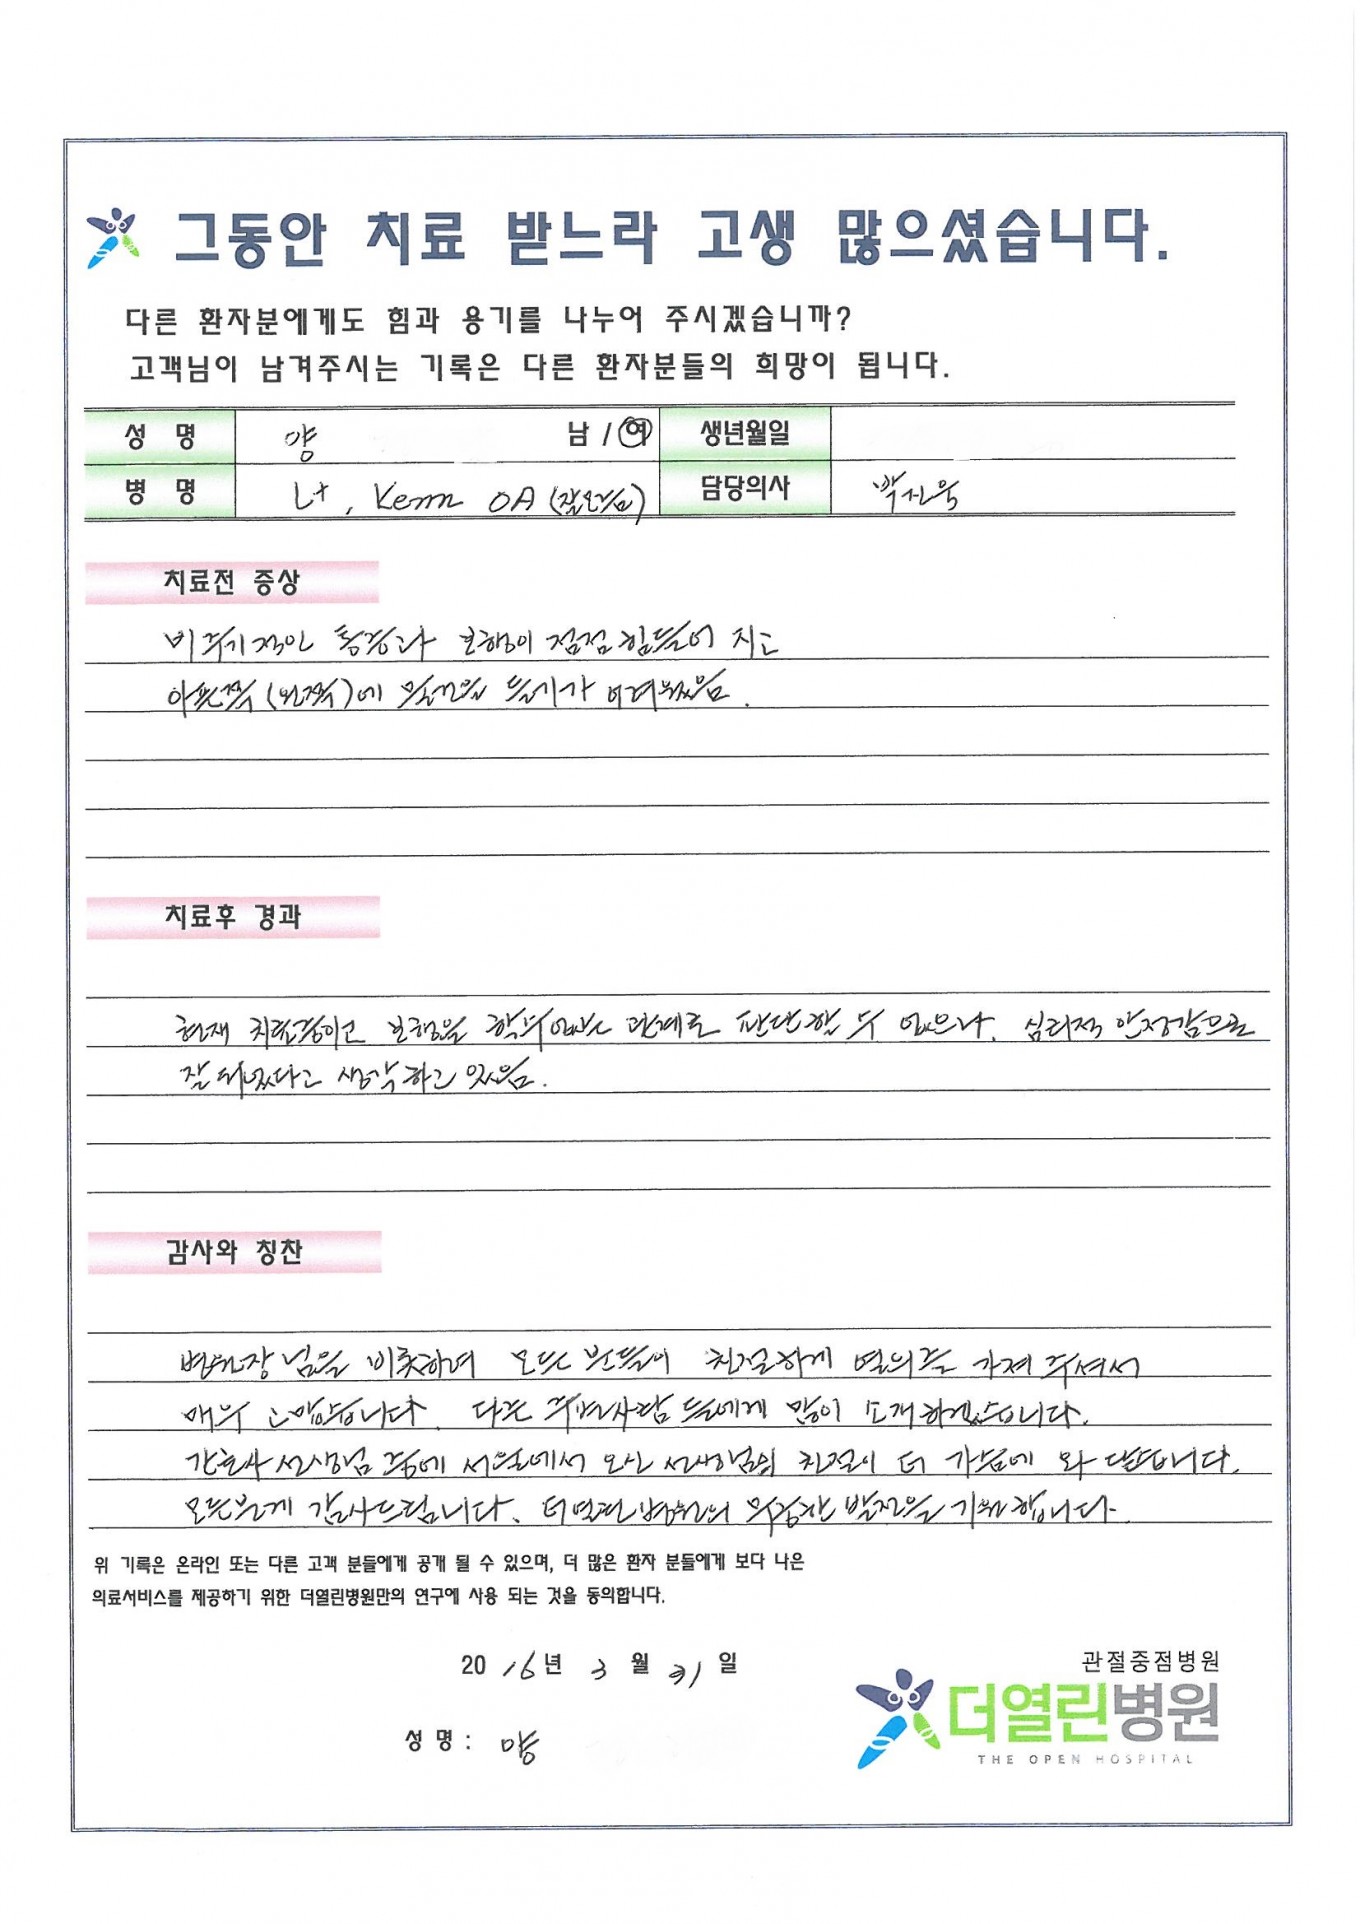 그동안 치료 받느라 고생 많으셨습니다.
다른 환자분에게도 힘과 용기를 나누어 주시겠습니까?
고객님이 남겨주시는 기록은 다른 환자분들의 희망이 됩니다.
성 명 양 남 / 여 생년월일
병 명 Lt, Kenn OA (잘모름) 담당의사 박진욱
치료전 증상
비주기적인 통증과 보행이 점점 힘들어 지고
아픈쪽 (왼쪽)에 물건을 들기가 어려웠음.
치료후 경과
현재 치료중이고 보행을 할수없는 관계로 판단할 수 없으나, 심리적 안정감으로
잘 되었다고 생각하고 있음.
감사와 칭찬
병원장님을 비롯하여 모든 분들이 친절하게 열의를 가져 주셔서
매우 고맙습니다. 다른 주변사람들에게 많이 소개하겠습니다.
간호사 선생님 중에 서울에서 오신 선생님의 친절이 더 가슴에 와 닿습니다.
모든분께 감사드립니다. 더열린병원의 무궁한 발전을 기원합니다.
위 기록은 온라인 또는 다른 고객 분들에게 공개 될 수 있으며, 더 많은 환자 분들에게 보다 나은
의료서비스를 제공하기 위한 더열린병원만의 연구에 사용 되는 것을 동의합니다.
2016년 3 월 31 일
성 명 : 양
관절중점병원
더열린병원
THE OPEN HOSPITAL